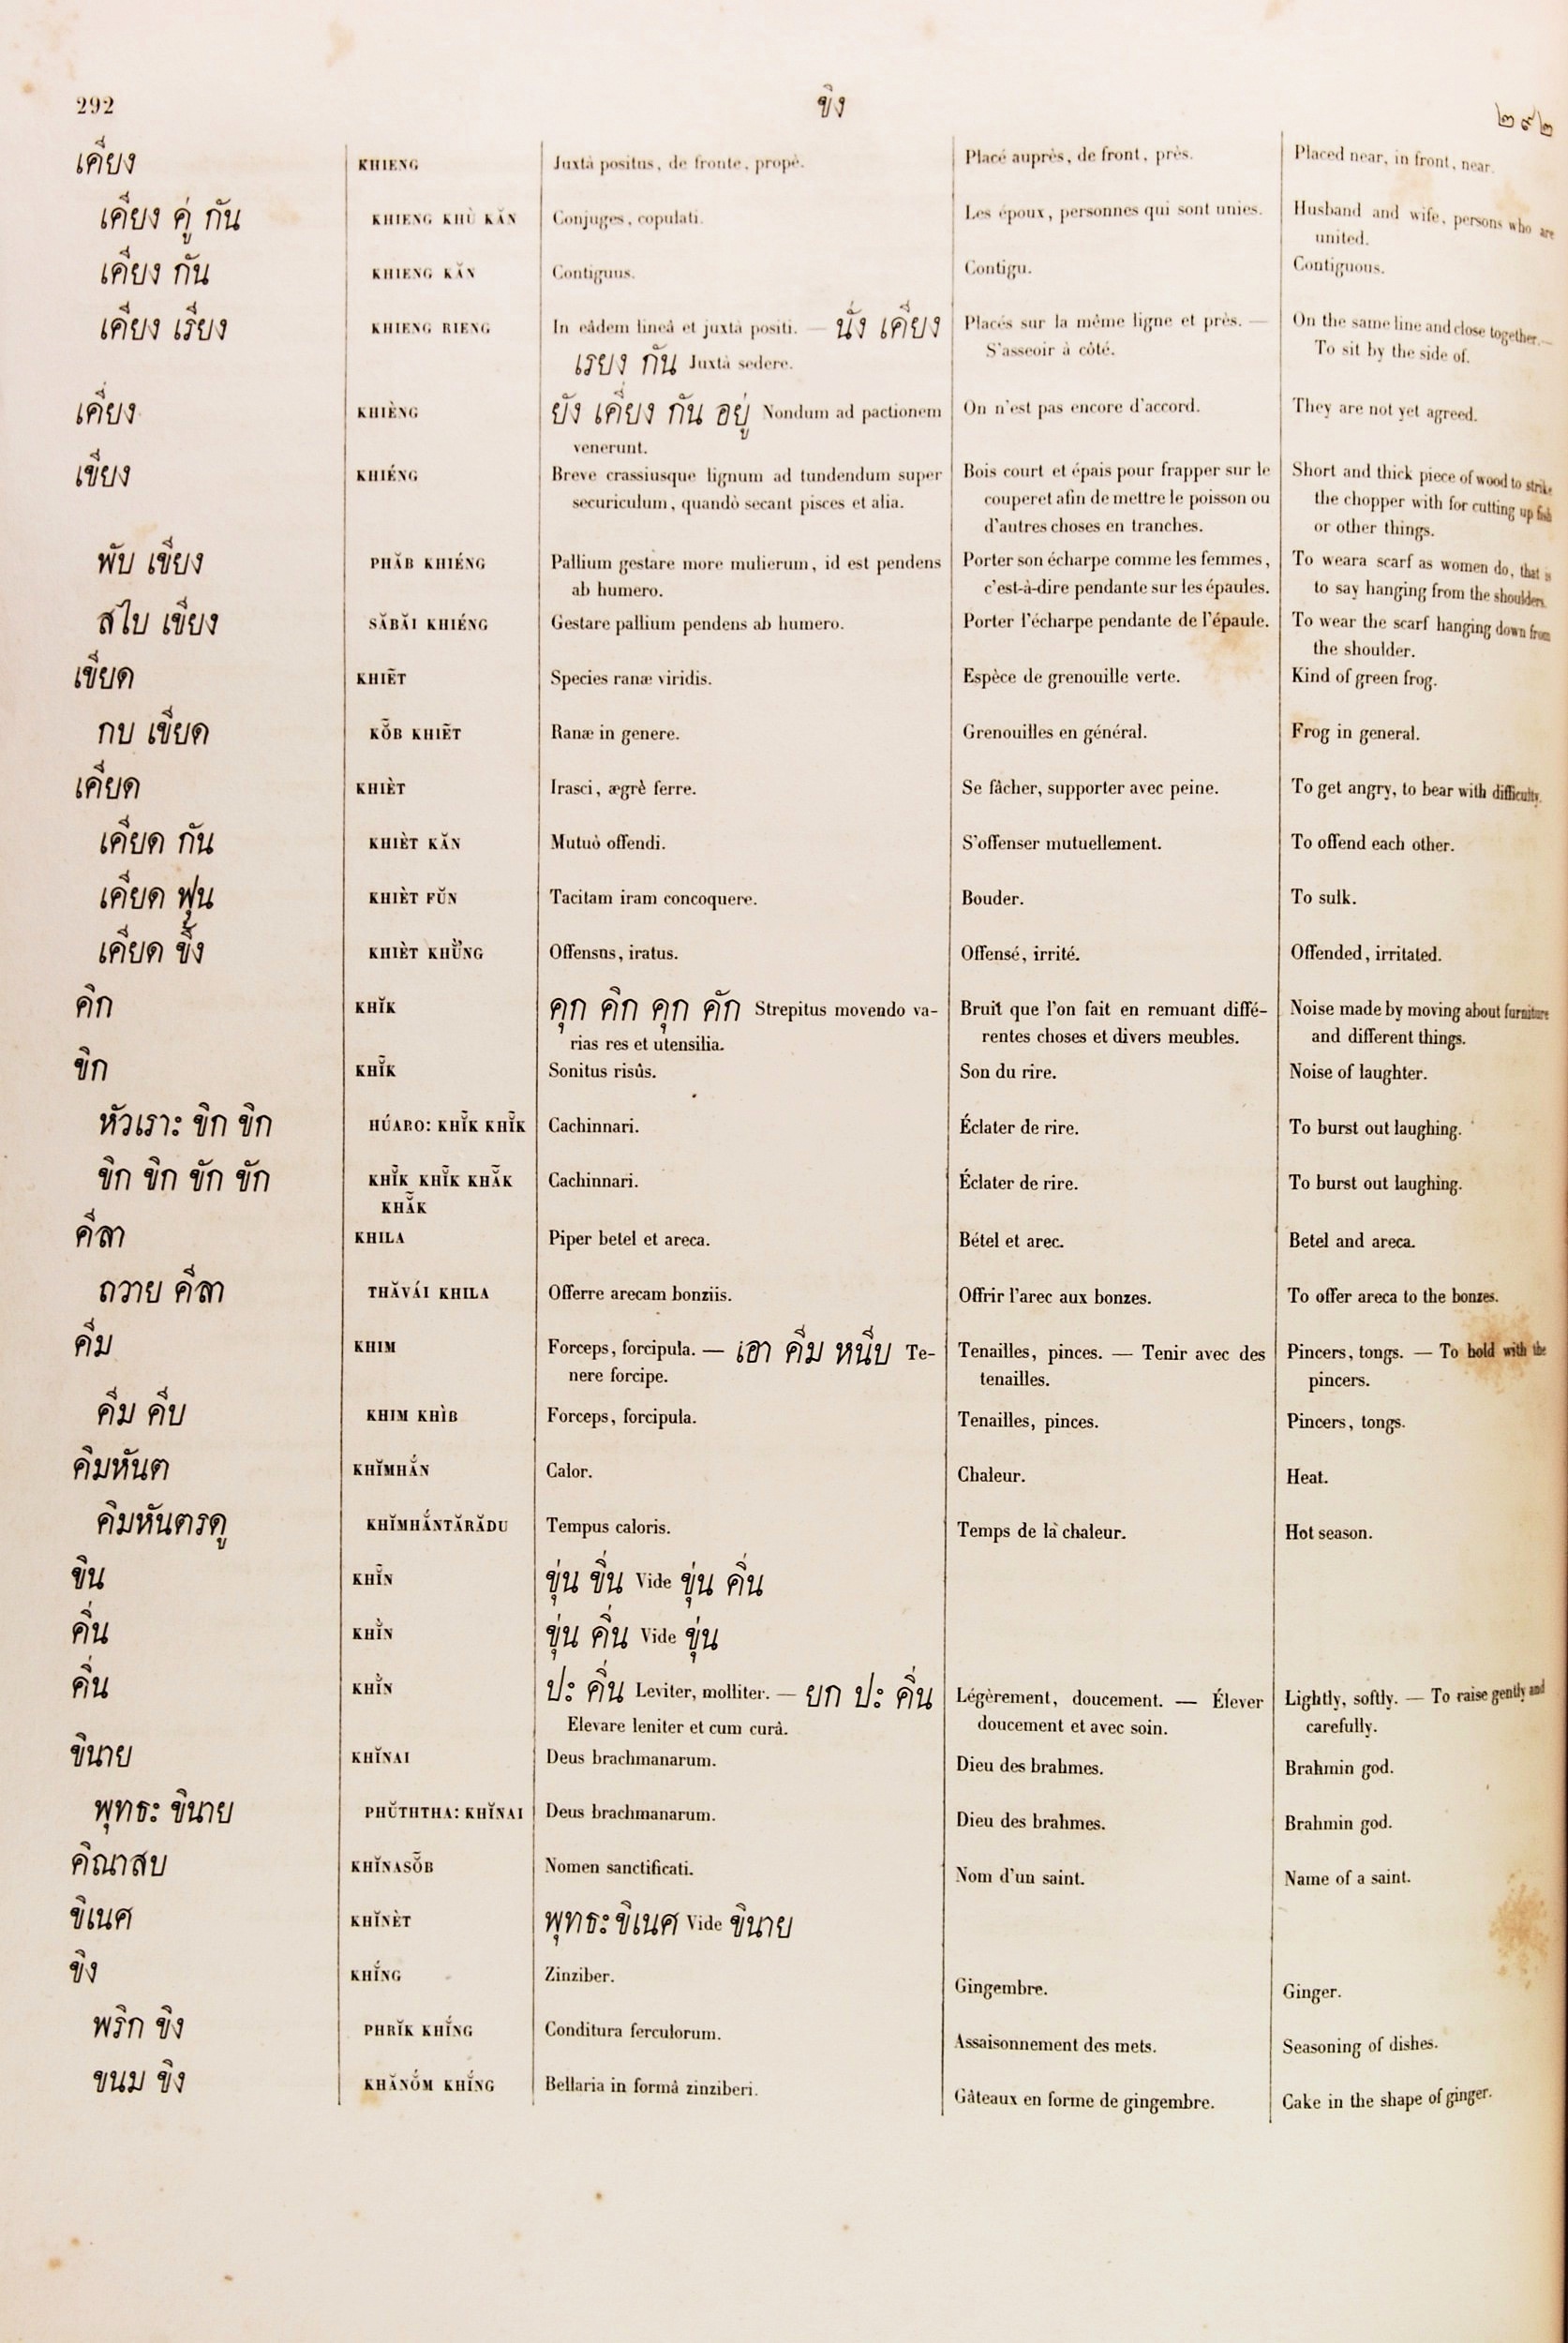 292 ขิง ๒๙๒
เคียง KHIENG Juxtà positus, de fronte, propè. Placé auprès, de front, près. Placed near, in front, near.
เคียง คู่ กัน KHIENG KHÙ KĂN Conjuges, copulati. Les époux, personnes qui sont unies. Husband and wife, persons who are
united.
เคียง กัน KHIENG KĂN Contiguus. Contigu. Contiguous.
เคียง เรียง KHIENG RIENG In eâdem lineâ et juxtà positi. — นั่ง เคียง Placés sur la même ligne et près. — On the same line and close together. —
เรยง กัน Juxtà sedere. S'asseoir à côté. To sit by the side of.
เคี่ยง KHIÈNG ยัง เคี่ยง กัน อยู่ Nondum ad pactionem On n'est pas encore d'accord. They are not yet agreed.
venerunt.
เขียง KHIÉNG Breve crassiusque lignum ad tundendum super Bois court et épais pour frapper sur le Short and thick piece of wood to strike
securiculum, quandò secant pisces et alia. couperet afin de mettre le poisson ou the chopper with for cutting up fish
d'autres choses en tranches. or other things.
พับ เขียง PHĂB KHIÉNG Pallium gestare more mulierum, id est pendens Porter son écharpe comme les femmes, To weara scarf as women do, that is
ab humero. c'est-à-dire pendante sur les épaules. to say hanging from the shoulders.
สไบ เขียง SĂBĂI KHIÉNG Gestare pallium pendens ab humero. Porter l'écharpe pendante de l'épaule. To wear the scarf hanging down from
the shoulder.
เขียด KHIẼT Species ranæ viridis. Espèce de grenouille verte. Kind of green frog.
กบ เขียด KŎ̃B KHIẼT Ranæ in genere. Grenouilles en général. Frog in general.
เคียด KHIÈT Irasci, ægrè ferre. Se fâcher, supporter avec peine. To get angry, to bear with difficulty.
เคียด กัน KHIÈT KĂN Mutuò offendi. S'offenser mutuellement. To offend each other.
เคียด ฟุน KHIÈT FŬN Tacitam iram concoquere. Bouder. To sulk.
เคียด ขึ้ง KHIÈT KHŬ̀NG Offensus, iratus. Offensé, irrité. Offended, irritated.
คิก KHĬK คุก คิก คุก คัก Strepitus movendo va- Bruit que l'on fait en remuant diffé- Noise made by moving about furniture
rias res et utensilia. rentes choses et divers meubles. and different things.
ขิก KHĬ̃K Sonitus risûs. Son du rire. Noise of laughter.
หัวเราะ ขิก ขิก HÚARO: KHĬ̃K KHĬ̃K Cachinnari. Éclater de rire. To burst out laughing.
ขิก ขิก ขัก ขัก KHĬ̃K KHĬ̃K KHẴK Cachinnari. Éclater de rire. To burst out laughing.
KHẴK
คีลา KHILA Piper betel et areca. Bétel et arec. Betel and areca.
ถวาย คีลา THĂVÁI KHILA Offerre arecam bonziis. Offrir l'arec aux bonzes. To offer areca to the bonzes.
คีม KHIM Forceps, forcipula. — เอา คีม หนีบ Te- Tenailles, pinces. — Tenir avec des Pincers, tongs. — To hold with the
nere forcipe. tenailles. pincers.
คีม คีบ KHIM KHÌB Forceps, forcipula. Tenailles, pinces. Pincers, tongs.
คิมหันต KHĬMHẮN Calor. Chaleur. Heat.
คิมหันตรดู KHĬMHẮNTĂRĂDU Tempus caloris. Temps de la chaleur. Hot season.
ขิน KHĬ̃N ขุ่น ขิ่น Vide ขุ่น คิ่น
คิ่น KHĬ̀N ขุ่น คิ่น Vide ขุ่น
คิ่น KHĬ̀N ปะ คิ่น Leviter, molliter. — ยก ปะ คิ่น Légèrement, doucement. — Élever Lightly, softly. — To raise gently and
Elevare leniter et cum curâ. doucement et avec soin. carefully.
ขินาย KHĬNAI Deus brachmanarum. Dieu des brahmes. Brahmin god.
พุทธะ ขินาย PHŬTHTHA: KHĬNAI Deus brachmanarum. Dieu des brahmes. Brahmin god.
คิณาสบ KHĬNASŎ̃B Nomen sanctificati. Nom d'un saint. Name of a saint.
ขิเนศ KHĬNÈT พุทธะขิเนศ Vide ขินาย
ขิง KHĬ́NG Zinziber. Gingembre. Ginger.
พริก ขิง PHRĬK KHĬ́NG Conditura ferculorum. Assaisonnement des mets. Seasoning of dishes.
ขนม ขิง KHĂNŎ́M KHĬ́NG Bellaria in formâ zinziberi. Gâteaux en forme de gingembre. Cake in the shape of ginger.